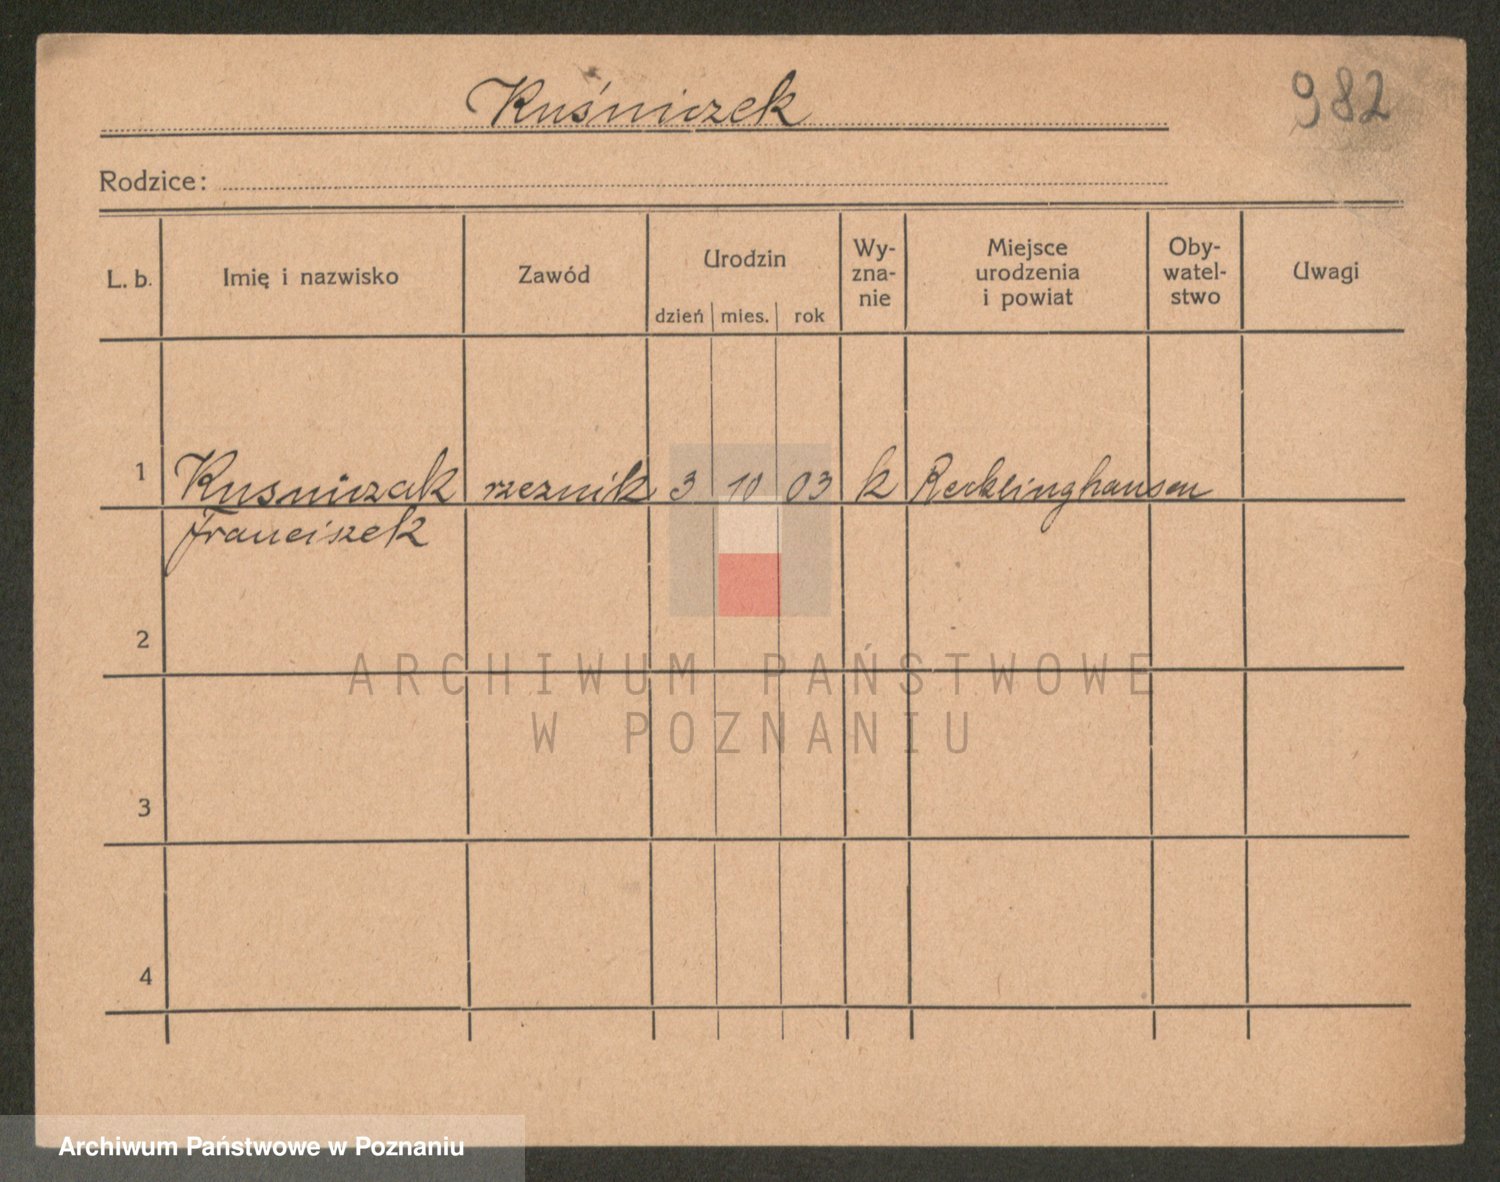 Kuśniczek
982
Rodzice:
L. b.
Imię i nazwisko
Zawód
Urodzin
dzień
mies.
rok
Wy-
zna-
nie
Miejsce
urodzenia
i powiat
Oby-
watel-
stwo
Uwagi
1 Kusniczak rzeznik 3 10 03 k Recklinghausen
Franciszek
2
3
4
ARCHIWUM PAŃSTWOWE
W POZNANIU
Archiwum Państwowe w Poznaniu